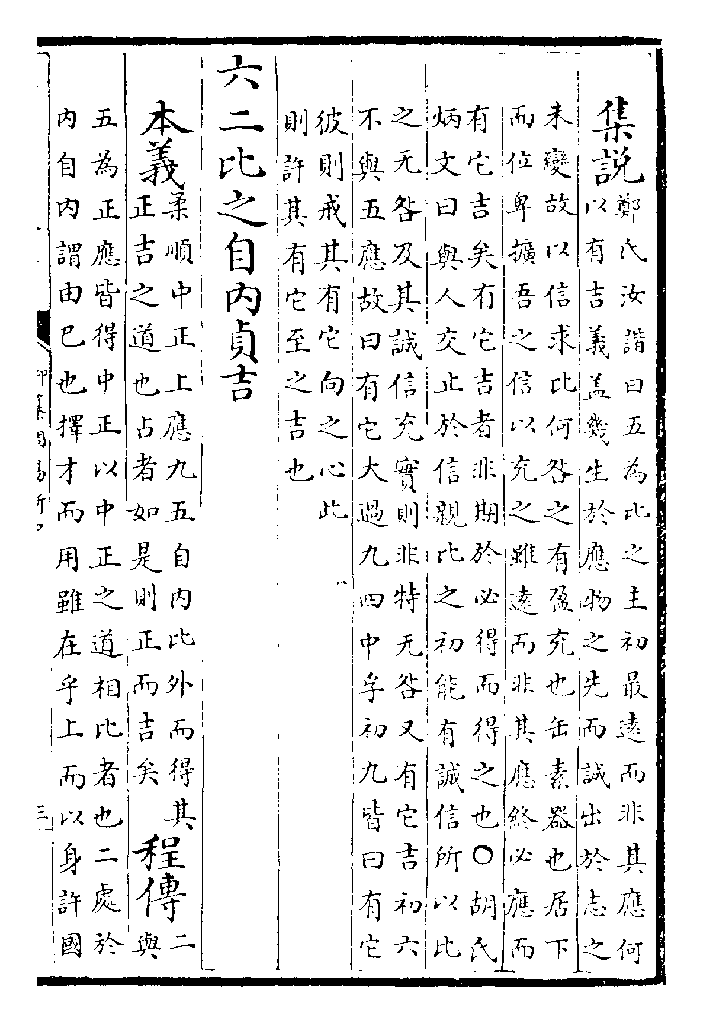 集説鄭氏汝諧曰五為比之主初最遠而非其應何
以有吉義盖幾生於應物之先而誠出於志之
未變故以信求比何咎之有盈充也缶素器也居下
而位卑擴吾之信以充之雖遠而非其應終必應而
有它吉矣有它吉者非期於必得而得之也○胡氏
炳文曰與人交止於信親比之初能有誠信所以比
之无咎及其誠信充實則非特无咎又有它吉初六
不與五應故曰有它大過九四中孚初九皆曰有它
彼則戒其有它向之心此
則許其有它至之吉也
六二比之自内貞吉
本義柔順中正上應九五自内比外而得其
正吉之道也占者如是則正而吉矣
程傳二與
五為正應皆得中正以中正之道相比者也二處於
内自内謂由已也擇才而用雖在乎上而以身許國
御纂周易折中
三